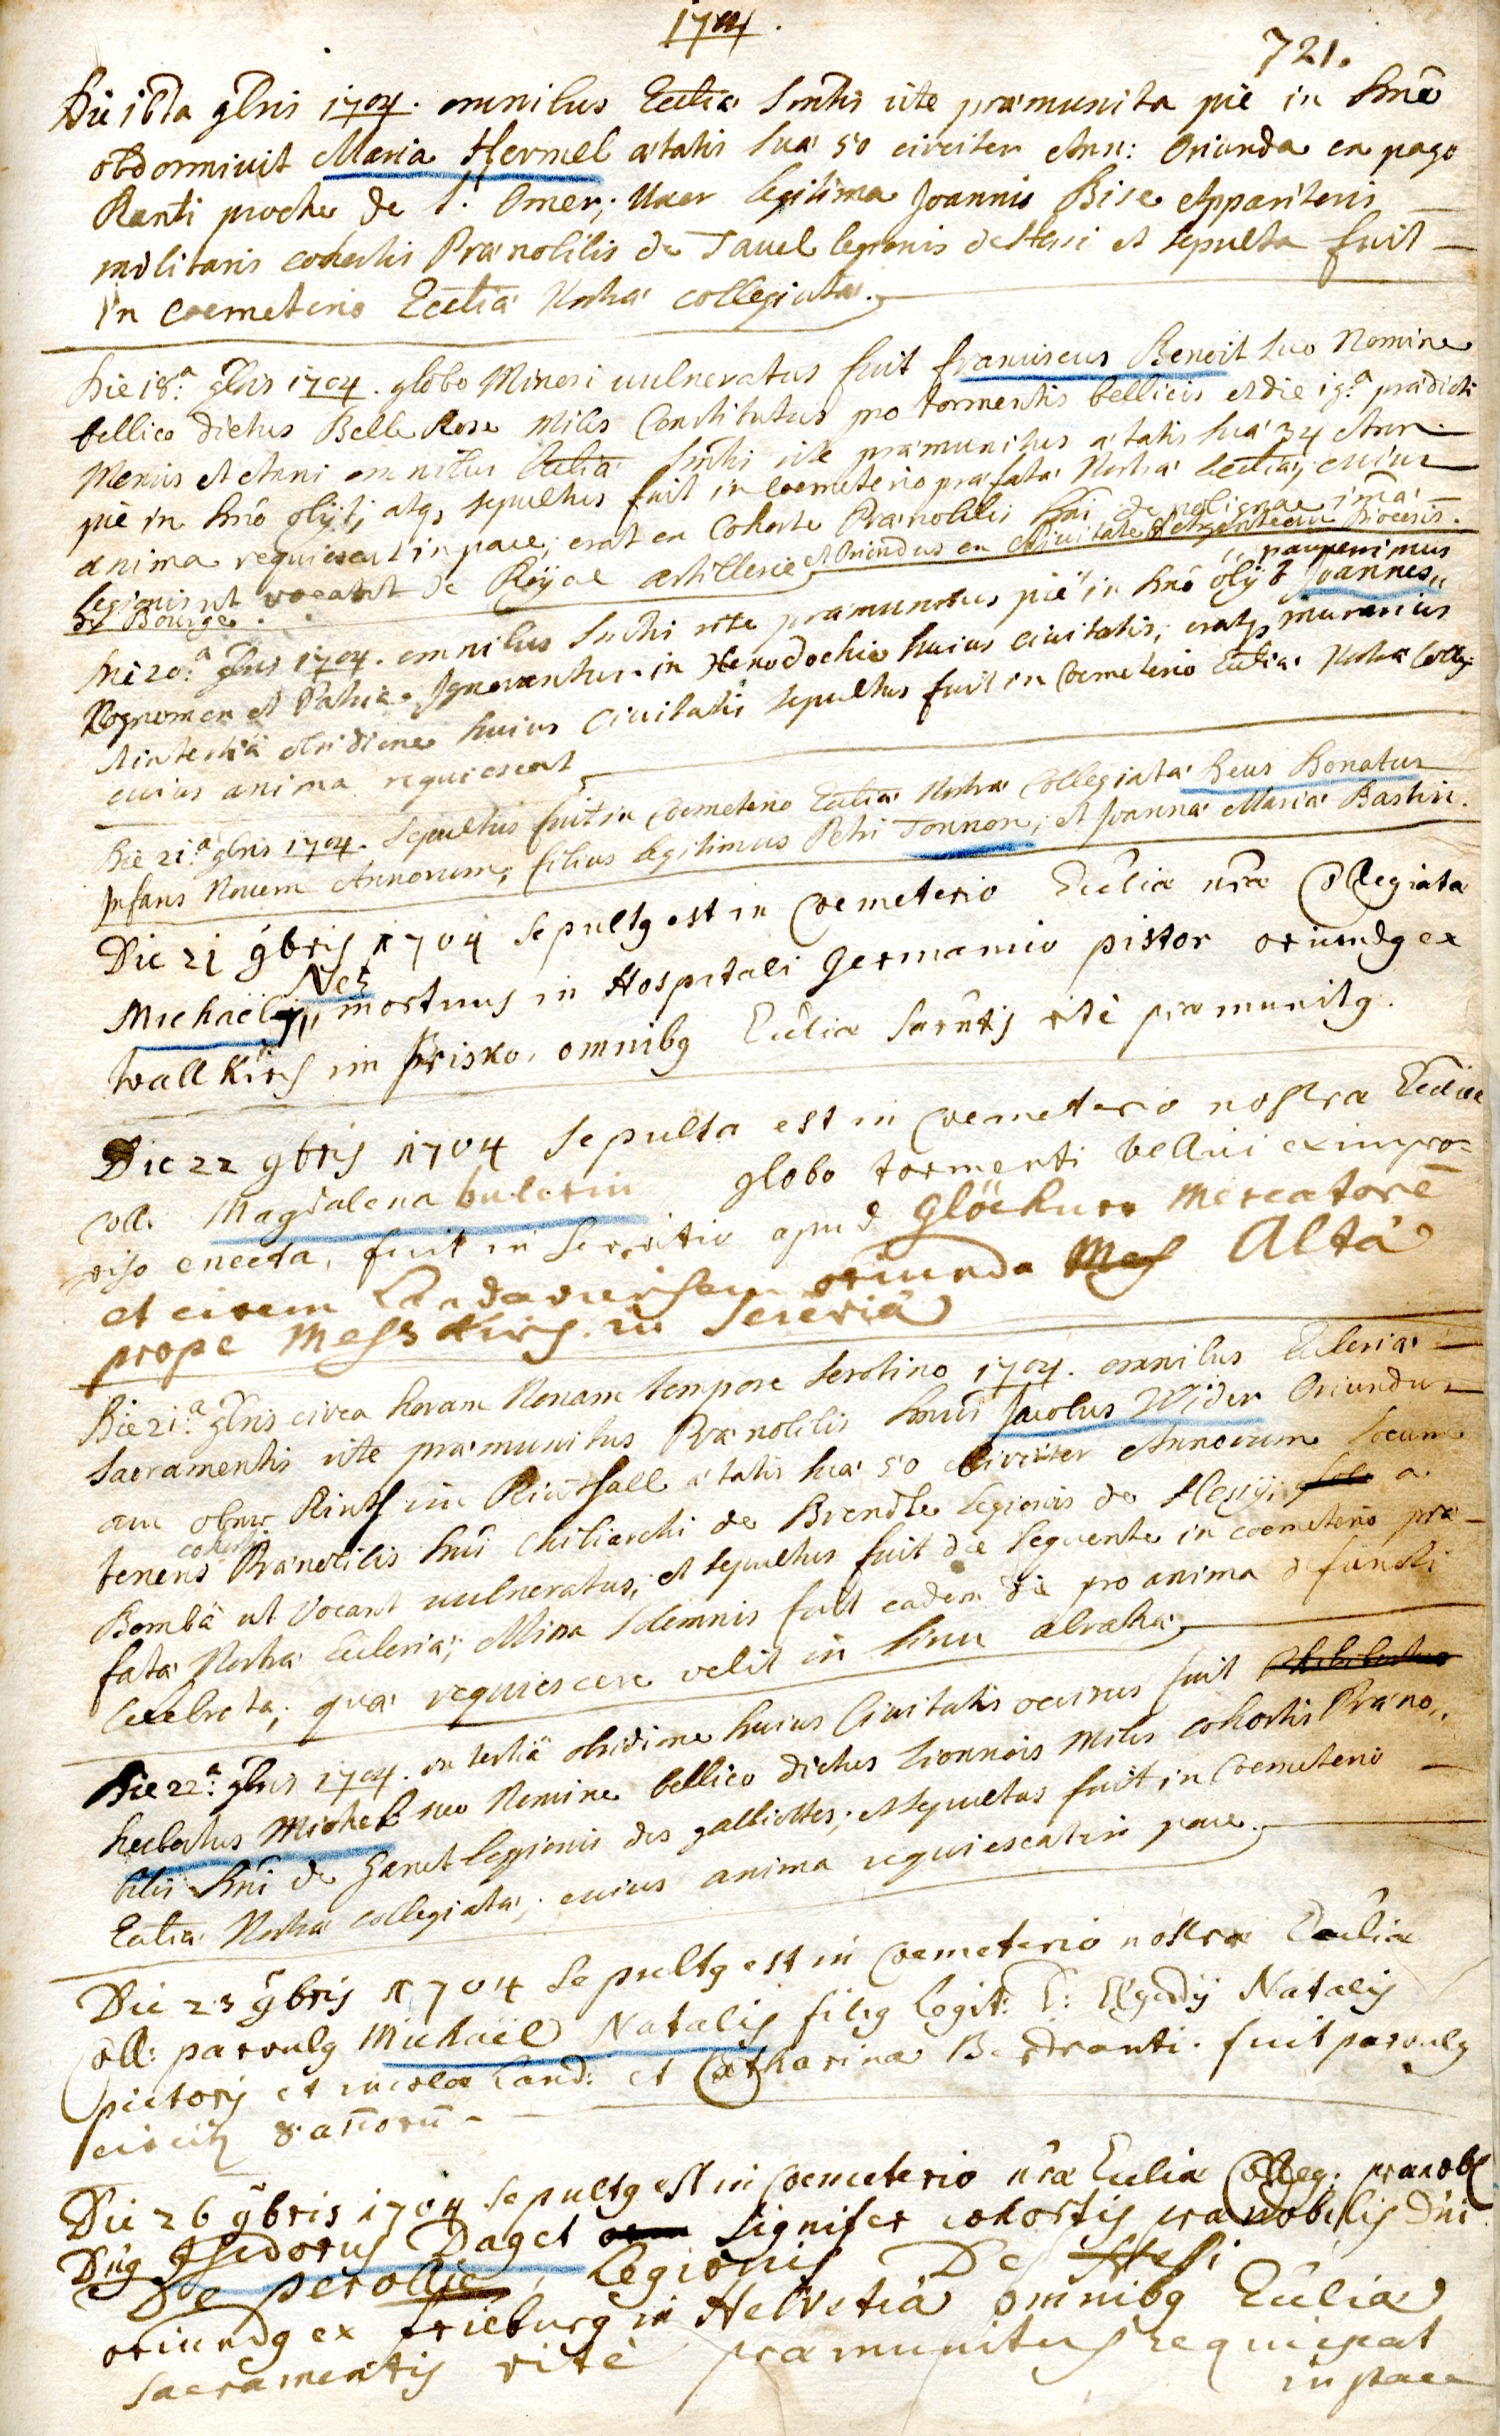 1704.
721.
Die 18ta 9bris 1704. omnibus Ecctiæ Smtis rite præmunita pie in Dnõ
obdormivit Maria Hermel ætatis suæ 50 circiter Ann: Oriunda ex pago
Ranti proche de S. Omer; Uxor legitima Joannis Bise Apparitoris
militaris cohortis Prænobilis de Tavel legionis de Hessi et sepulta fuit
in Coemeterio Ecctiæ Nostræ collegiatæ.
Die 18.a 9bris 1704. globo Minori vulneratus fuit franciscus Benoit suo Nomine
bellico dictus Belle Rose Miles Constitutus pro tormentis bellicis et die 19.a prædicti
Mensis et Anni omnibus Ecctiæ Smtis rite præmunitus ætatis suæ 34 Ann.
pie in Dnõ obijt, atq, sepultus fuit in Coemeterio præfatæ Nostræ Ecctiæ; cuius
anima requiescat in pace; erat ex Cohorte Prænobilis Dni de imæ
legionis ut vocant de Royal Artillerie et Oriundus ex Civitate Diocesis.
de Bourge.
pauperimus
Die 20.a 9bris 1704. omnibus Smtis rite præmunitus pie in Dnõ obijt Joannes
Cognomen et Patria Ignorantur in Xenodochio huius civitatis; eratq murarius
et in tertiâ obsidione huius Civitatis sepultus fuit in Coemeterio Ecctiæ Nostræ Colleg:
cuius anima requiescat
Die 21.a 9bris 1704. sepultus fuit in Coemeterio Ecctiæ Nostræ Collegiatæ Deus Donatus
Infans Novem Annorum; filius legitimus Petri Tonnon; et Joannæ Mariæ Bastin.
Die 21 9bris 1704 sepultg est in Coemeterio Ecclia nrã Collegiata
Nez
Michaël mortuus in Hospitali Germanico pistor oriundg ex
Wallkirch im Brisko. omnibg Ecclia Sacntis ritè præmunitg.
Die 22 9bris 1704 sepulta est in Coemeterio nostra Ecclia
Coll. Magdalena bulerin globo tormenti bellici ex impro=
viso enecta, fuit in Servitio apud Glöckner Mercatorē
et civem Landaviensem oriunda Mes Altà
prope Mess Kirch in Sueviâ
Die 21.a 9bris circa horam Nonam tempore serotino 1704. omnibus Ecclesiæ
Sacramentis rite præmunitus Prænobilis Dnus Jacobus Wider Oriundus
aus ober im ætatis suæ 50 circiter Annorum locum
cohortis
tenens Prænobilis Dni Chiliarchi de Brendle legionis de Hessy; a
Bomba ut vocant vulneratus; et sepultus fuit die sequente in coemeterio præ
fatæ Nostræ Ecclesiæ; Missa Solemnis fuit eadem die pro anima defuncti
Celebrata; quæ requiescere velit in sinu abrahæ
Die 22.a 9bris 1704. in tertiâ obsidione huius Civitatis occisus fuit
hubertus Michel suo Nomine bellico dictus Lionnois Miles cohortis Præno,,
bilis Dni de Ganet legionis des galliottes; et sepultus fuit in Coemeterio
Ecctiæ Nostræ collegiatæ; cuius anima requiescat in pace.
Die 23 9bris 1704 sepultg est in Coemeterio nostra Ecclia
Coll: parvulg Michaël Natalis filg legit: D: Ægidij Natalis
pictoris et incolæ Land: et Catharina Bertranti. fuit parvulg
circit 8 añorū
Die 26 9bris 1704 sepultg est in Coemeterio nrã Ecclia Colleg. prænobl
Dng Isedorus Daget signifer cohortis prænobilis Dni
De perollie, Legionis De Hessi
oriundg ex frieburg in Helvetiâ omnibg Ecclia
Sacramentis ritè præmunitus requiescat
in pace